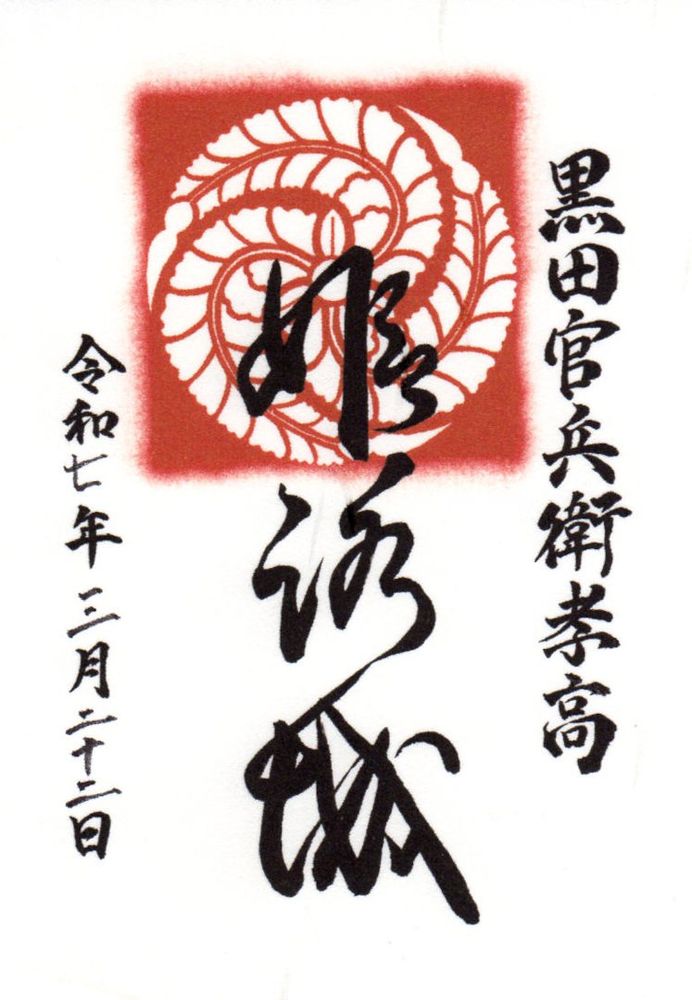 黒田官兵衛孝高
姫路城
令和七年三月二十二日